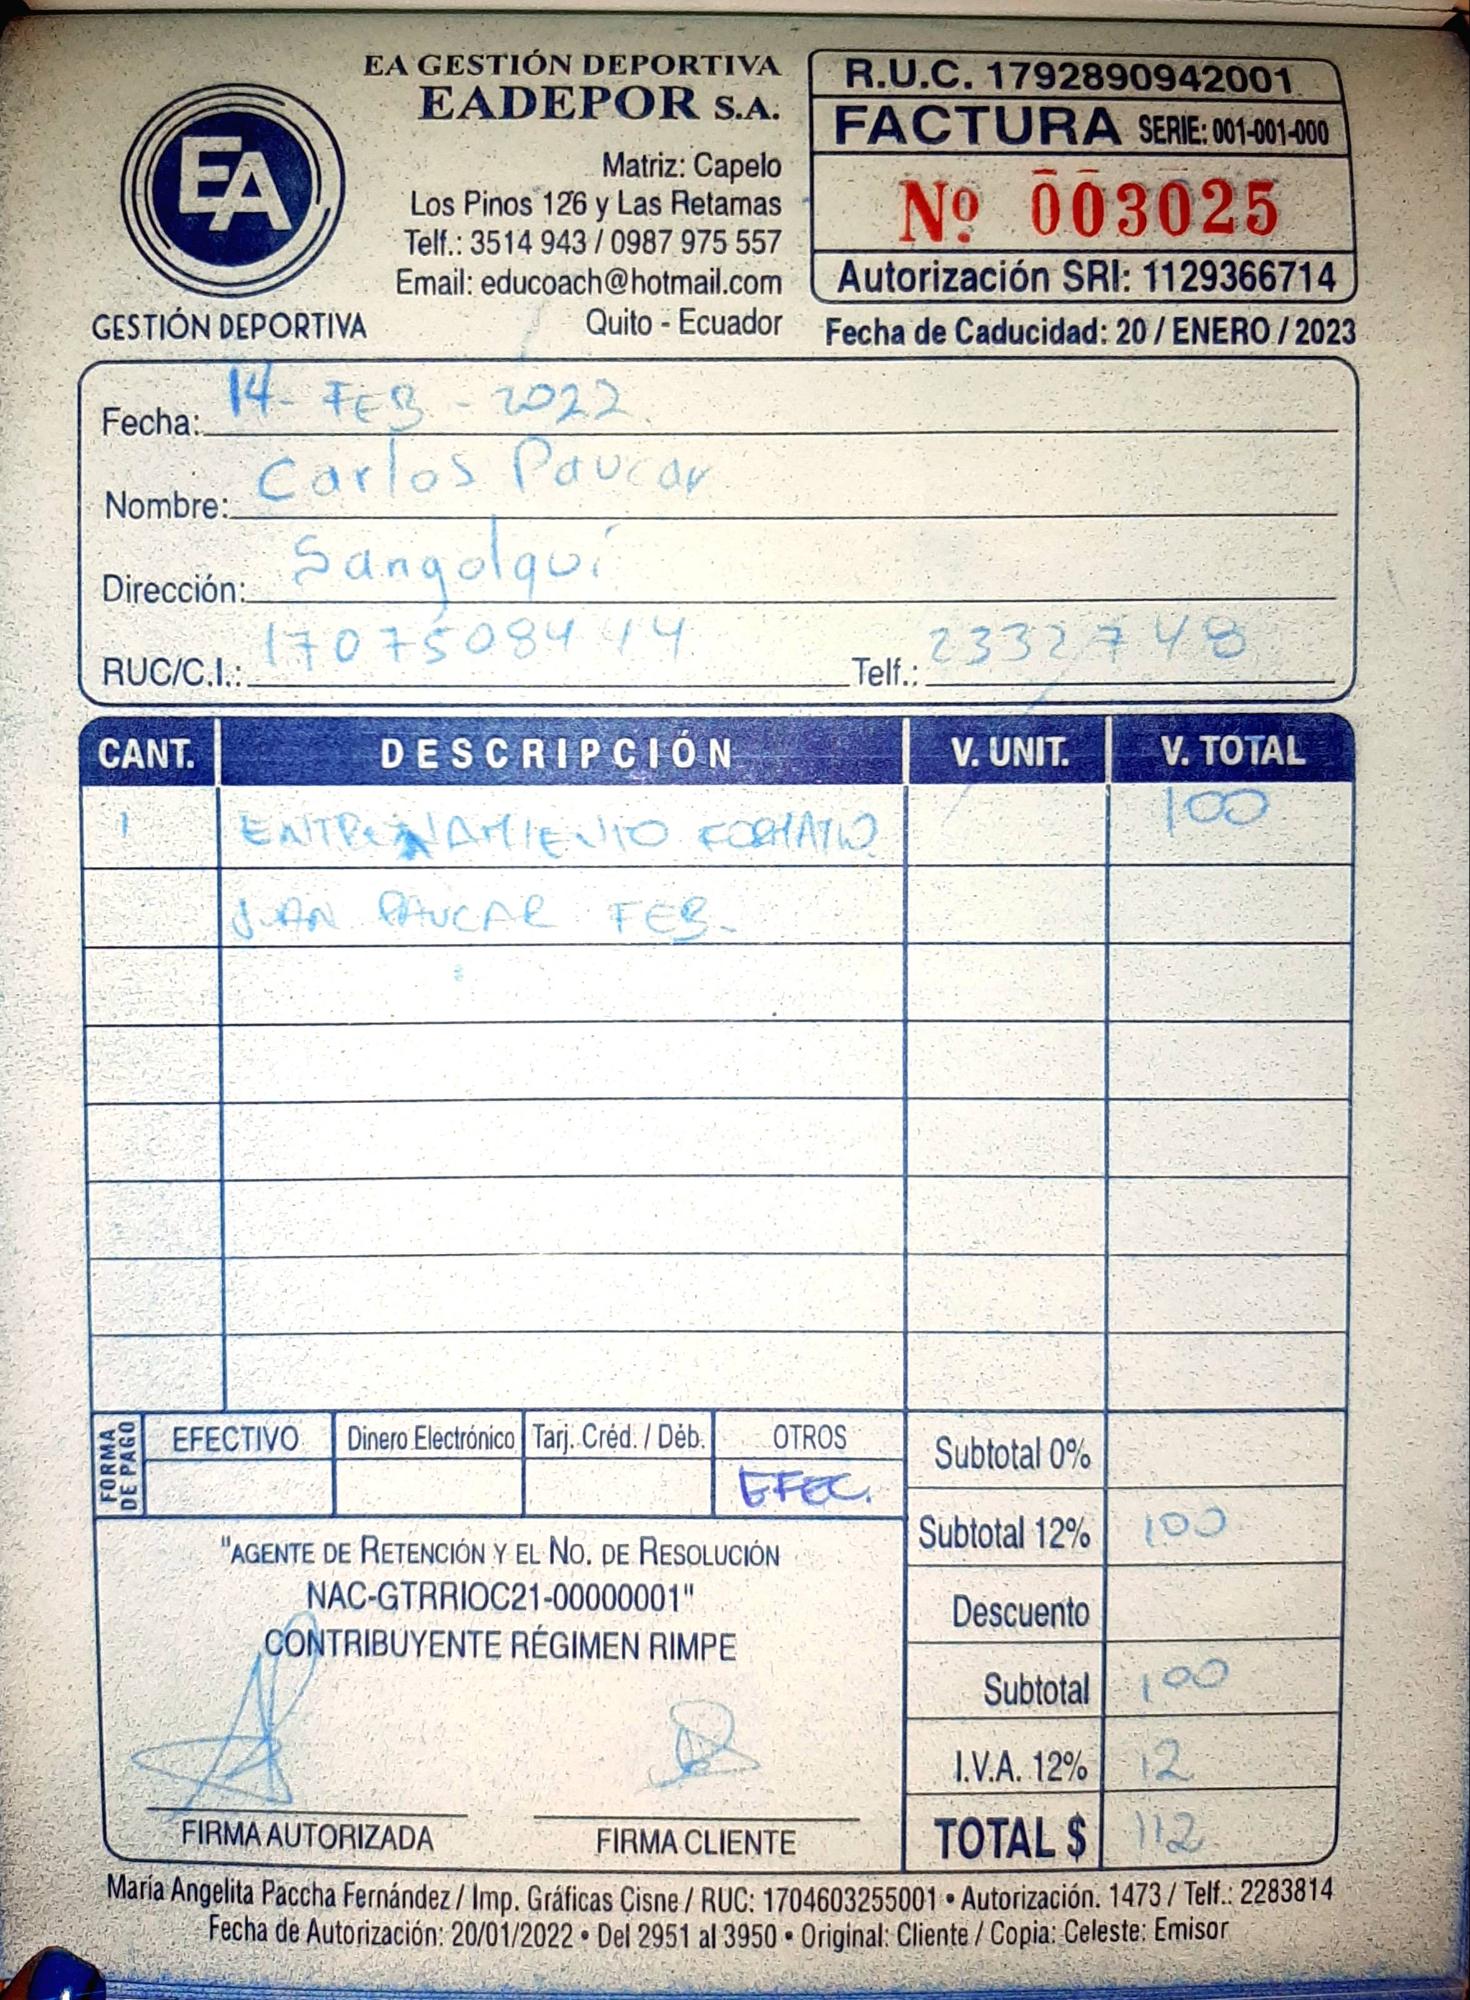 EA GESTIÓN DEPORTIVA
EADEPOR S.A.
EA
GESTIÓN DEPORTIVA
Matriz: Capelo
Los Pinos 126 y Las Retamas
Telf.: 3514 943 / 0987 975 557
Email: educoach@hotmail.com
Quito - Ecuador
R.U.C. 1792890942001
FACTURA SERIE: 001-001-000
Nº 003025
Autorización SRI: 1129366714
Fecha de Caducidad: 20 / ENERO / 2023
Fecha: 14 - FEB - 2022
Nombre: Carlos Paucar
Dirección: Sangolquí
RUC/C.I.: Telf.: 2332748
CANT. DESCRIPCIÓN V. UNIT. V. TOTAL
1 ENTRENAMIENTO 100
JUAN PAUCAR FEB.
FORMA DE PAGO
EFECTIVO Dinero Electrónico Tarj. Créd. / Déb. OTROS
EFEC.
Subtotal 0%
Subtotal 12% 100
Descuento
Subtotal 100
I.V.A. 12% 12
TOTAL $ 112
"AGENTE DE RETENCIÓN Y EL NO. DE RESOLUCIÓN
NAC-GTRRIOC21-00000001"
CONTRIBUYENTE RÉGIMEN RIMPE
FIRMA AUTORIZADA FIRMA CLIENTE
María Angelita Paccha Fernández / Imp. Gráficas Cisne / RUC: 1704603255001 • Autorización. 1473 / Telf.: 2283814
Fecha de Autorización: 20/01/2022 • Del 2951 al 3950 • Original: Cliente / Copia: Celeste: Emisor